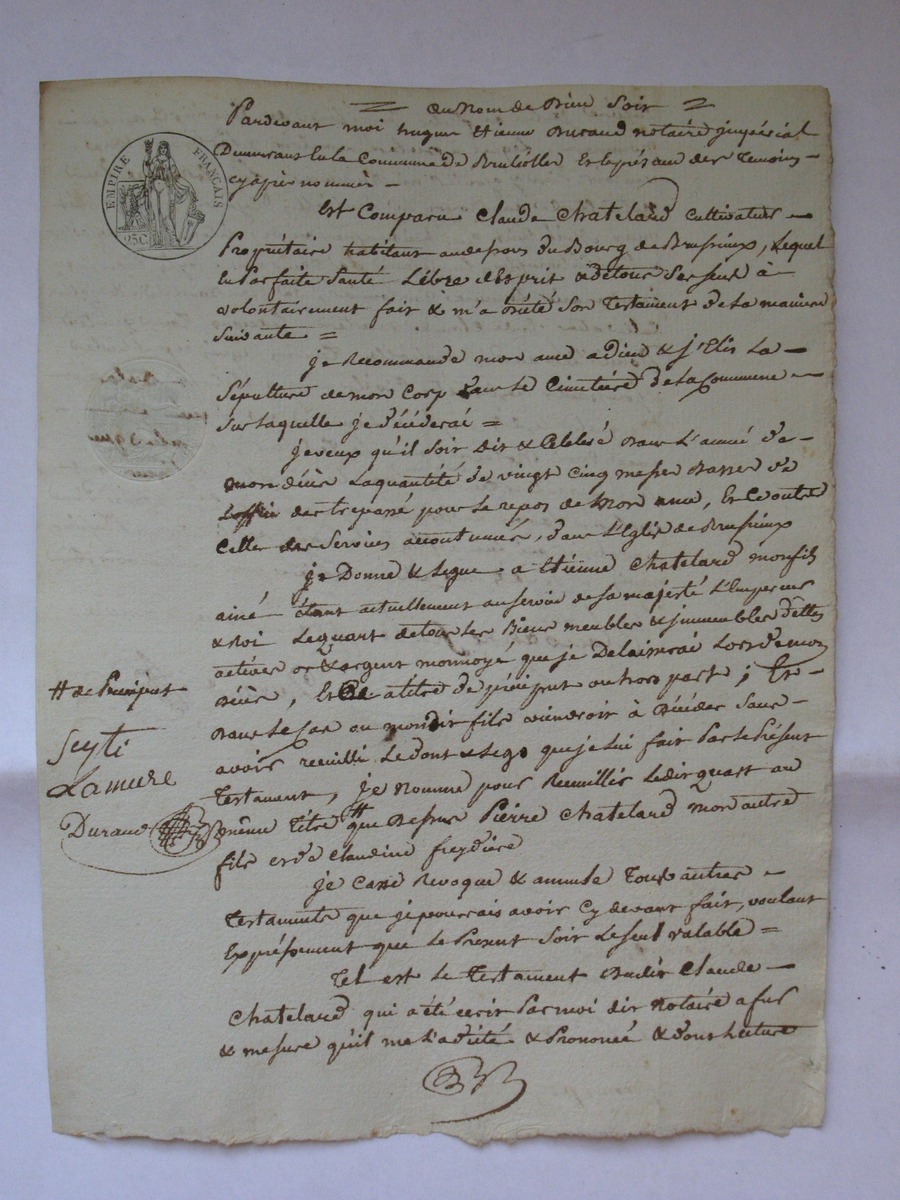 EMPIRE FRANÇAIS
25C
= au Nom de Dieu Soit =
Pardevant moi hugue Etienne Durand notaire jmpérial
Demeurant En la Commune De Brulolles Et le présence des Temoins
cy après nommés —
Est Comparu Claude Chatelard Cultivateur —
Propriétaire habitant au du Bourg de Brussieux, Lequel
En Parfaite Santé Libre d'Esprit & de tous Ses Sens à
volontairement fait & m'a dicté Son Testament De la maniere
Suivante =
je Recommande mon ame a Dieu & j'Elis La —
Sépulture de mon Corp Dans Le Cimetière De la Commune —
Sur laquelle je décéderai =
je veux qu'il Soit Dit & Célébré Dans L'année De
mon décès La quantité De vingt Cinq messes Basses De
l'office des trepassé pour le repos de Mon ame, Et Ce outre
Celles des Services accoutumés, dans L'Eglise de Brussieux
je Donne & Legue a Etienne Chatelard mon fils
ainé étant actuellement au Service de Sa majesté L'Empereur
& Roi Le quart de tous Les Biens meubles & jmmeubles dettes
actives or & argent monnoyé que je Delaisserai Lors de mon
Décès, Et Ce a titre de préciput ou hors part ; Et —
Dans le Cas ou mondit fils viendroit à Décéder Sans —
avoir recueilli Le dont & Legs que je Lui fait Par le Présent
Testament, je Nomme pour Recueillir Ledit quart au
même Titre # que Dessus Pierre Chatelard mon autre
fils et de Claudine freydière
je Casse Revoque & annulle Tous autres —
Testaments que je pourrais avoir Cy devant fait, voulant
Expréssement que le Présent Soit Le Seul valable =
Tel est le Testament Dudit Claude —
Chatelard qui a été ecrit Par moi dit Notaire a fur
& mesure qu'il me l'a dicté & Prononcé & d'ont Lecture
# de Préciput
Seyti
Lamure
Durand